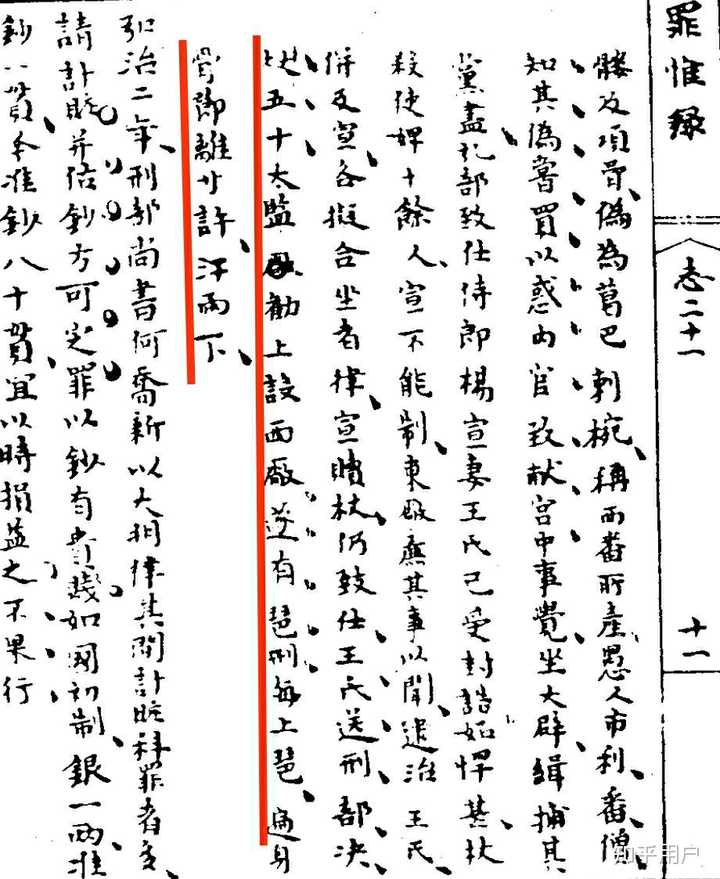 罪惟録
志二十一
十一
髏及項骨、偽為葛巴剌椀、稱西番所產愚人市利、番僧、
知其偽嘗買以惑內官致献宮中事覺坐大辟緝捕其
黨盡礼部致仕侍郎楊宣妻王氏已受封誥妬悍甚、杖
殺使婢十餘人、宣不能制、東厰廉其事以聞、逮治王氏、
併及宣各擬合坐者律、宣贖杖、仍致仕王氏送刑部决
杖五十太監勸上設西厰遂有琶刑每上琶、遍身
骨即離寸許、汗雨下、
弘治二年、刑部尚書何喬新以大明律其間計賍科罪者多、
請計賍并估鈔方可定罪以鈔有貴賤如國初制、銀一兩准
鈔一貫、今准鈔八十貫、宜以時損益之不果行
知乎用户